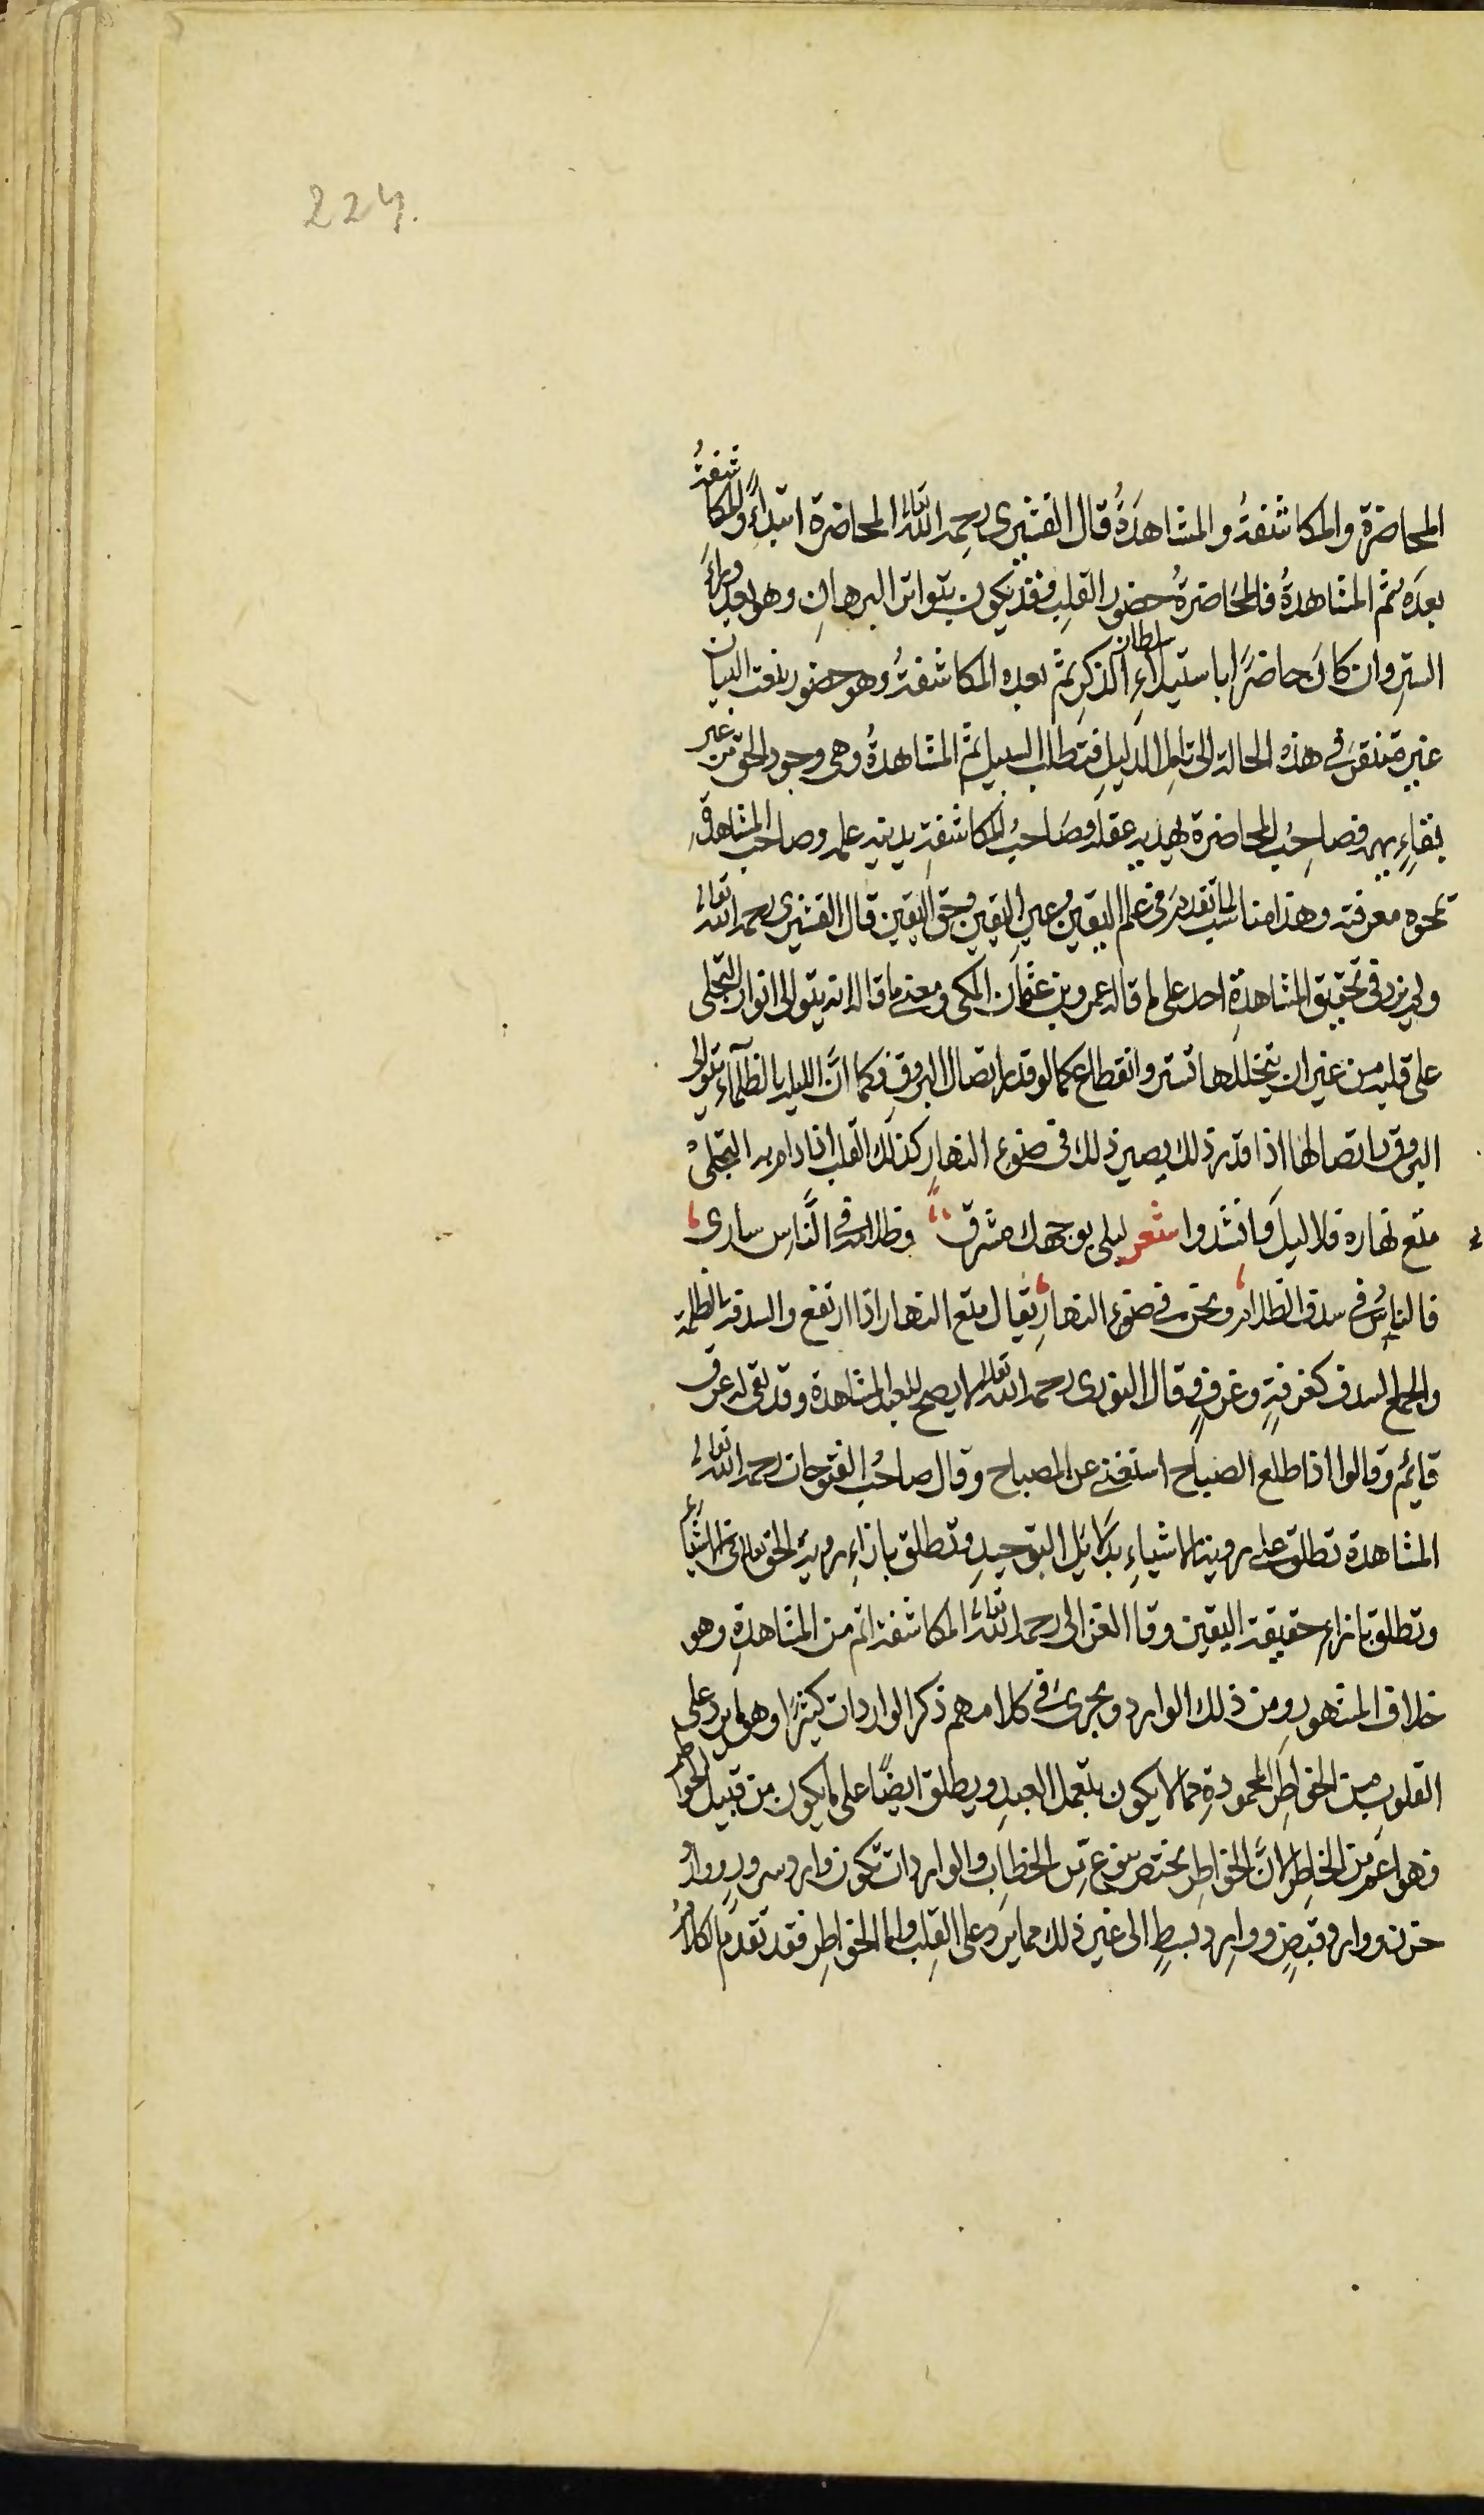 224.
المحاضرة والمكاشفةُ والمشاهَدَةُ قال القشيرى رحِمه الله تعالى المحاضرة ابتداءً والمكاشفةُ
بعدَه ثم المشاهدةُ فالمحاضرةُ حضور القلبِ فقد يكون بتواتر البرهانِ وهو بعد وراءَ
الستر وان كانَ حاضرًا باستيلاءِ سلطان الذكرِ ثم بعده المكاشفةُ وهو حضور بنعت البيان
غير مفتقر فى هذه الحالة الى تامل الدليلِ وتطلب السبيل ثم المشاهدةُ وهى وجود الحق من غير
بقاءِ تهمة فصاحِبُ المحاضرة يهديه عقله وصَاحبُ المكاشفةِ يدنيه علمه وصاحب المشاهدة
تمحوه معرفته وهذا مناسب لما تقدم فى علم اليقين وعين اليقين وحق اليقين قال القشيرى رحمه الله تعالى
ولم يزد فى تحقيق المشاهدةِ احد على ما قاله عمرو بن عثمان المكى ومعنى ما قاله انه يتوالى انوار التجلى
على قلبه من غير ان يتخللها تستر وانقطاع كما لو قدر اتصال البروق فكما انَّ الليلة الظلماءَ بتوالى
البروق واتصالها اذا قدر ذلك يصير ذلك فى ضوء النهارِ كذلك القلب اذا دام به التجلى
متع نهاره فلا ليلَ وانشدوا شعر ليلى بوجهك مشرق وظلامه فى النَّاس سارى
فالناسُ فى سدف الظلام ونحن فى ضوء النهارِ يقال متع النهار اذا ارتفع والسدفة الظلمة
والجمع السدف كغرفةٍ وغرفٍ قال النورى رحمه الله تعالى لا يصح للعبد المشاهدة وقد بقى له عرق
قايم وقالوا اذا طلع الصباح استغنى عن المصباح وقال صاحبُ الفتوحات رحمه الله تعالى
المشاهدة تطلق على روية الاشياءِ بدلائل التوحيدِ وتطلق بازاءِ روية الحق تعالى فى الاشياء
وتطلق بازاء حقيقة اليقين وقا الغزالى رحمه الله تعالى المكاشفة اتم من المشاهدةِ وهو
خلاف المشهور ومن ذلك الوارد ويجرى فى كلامهم ذكر الواردات كثيرًا وهو ما يرد على
القلوبِ من الخواطِر المحمودةِ مما لا يكون بتعمل العبدِ ويطلق ايضًا على ما يكون من قبيل الخواطر
فهو اعَم من الخاطِر لانَّ الخواطِر تختص بنوع من الخطابِ والواردات تكون وارد سرورٍ ووارد
حزن ووارد قبضٍ ووارد بسطٍ الى غير ذلك مما يرد على القلبِ واما الخواطِر فقد تقدم الكلامُ